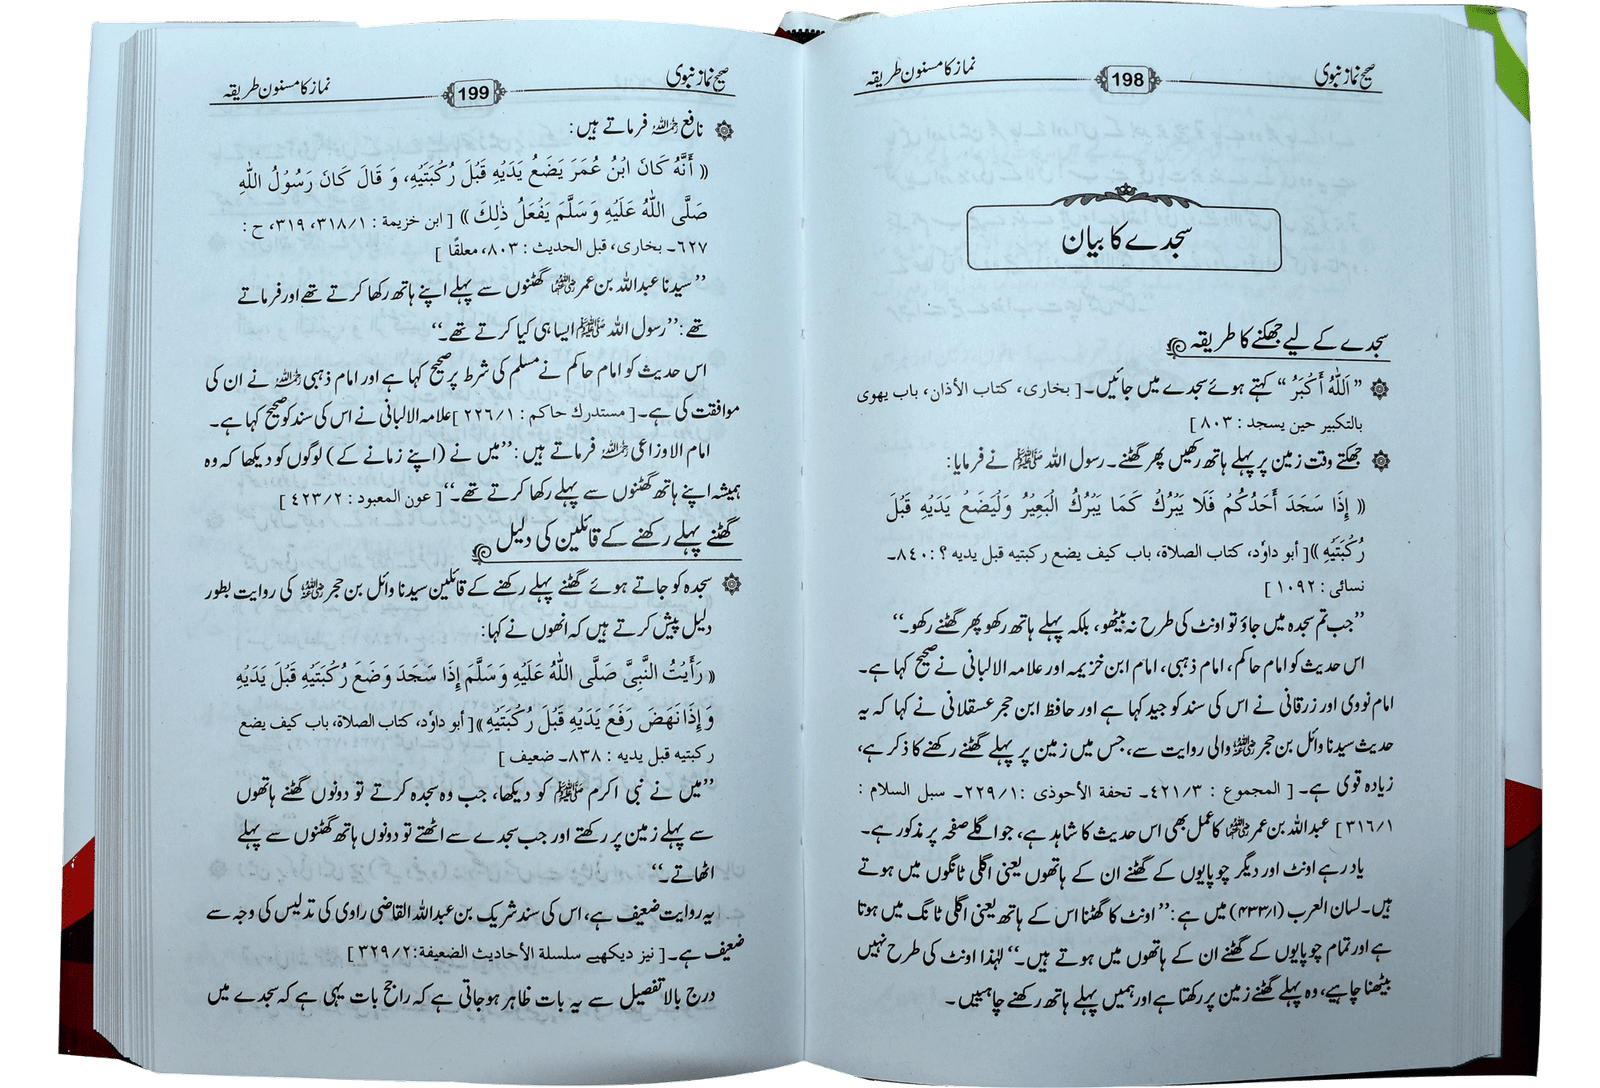 صحیح نماز نبوی
198
نماز کا مسنون طریقہ
سجدے کا بیان
سجدے کے لیے جھکنے کا طریقہ
”اَللّٰهُ أَكْبَرُ“ کہتے ہوئے سجدے میں جائیں۔ [ بخاری، کتاب الأذان، باب یھوی
بالتکبیر حین یسجد : ۸۰۳ ]
جھکتے وقت زمین پر پہلے ہاتھ رکھیں پھر گھٹنے۔ رسول اللہ ﷺ نے فرمایا:
(( إِذَا سَجَدَ أَحَدُكُمْ فَلَا يَبْرُكْ كَمَا يَبْرُكُ الْبَعِيْرُ وَلْيَضَعْ يَدَيْهِ قَبْلَ
رُكْبَتَيْهِ )) [ أبو داوٗد، کتاب الصلاة، باب کیف یضع رکبتیه قبل یدیه ؟ : ۸۴۰۔
نسائی : ۱۰۹۲ ]
”جب تم سجدہ میں جاؤ تو اونٹ کی طرح نہ بیٹھو، بلکہ پہلے ہاتھ رکھو پھر گھٹنے رکھو۔“
اس حدیث کو امام حاکم، امام ذہبی، امام ابن خزیمہ اور علامہ الالبانی نے صحیح کہا ہے۔
امام نووی اور زرقانی نے اس کی سند کو جید کہا ہے اور حافظ ابن حجر عسقلانی نے کہا کہ یہ
حدیث سیدنا وائل بن حجر رضی اللہ عنہ والی روایت سے، جس میں زمین پر پہلے گھٹنے رکھنے کا ذکر ہے،
زیادہ قوی ہے۔ [ المجموع : ۴۲۱/۳۔ تحفة الأحوذی : ۲۲۹/۱۔ سبل السلام :
۳۱۶/۱ ] عبداللہ بن عمر رضی اللہ عنہما کا عمل بھی اس حدیث کا شاہد ہے، جو اگلے صفحہ پر مذکور ہے۔
یاد رہے اونٹ اور دیگر چوپایوں کے گھٹنے ان کے ہاتھوں یعنی اگلی ٹانگوں میں ہوتے
ہیں۔ لسان العرب (۴۳۳/۱) میں ہے : ”اونٹ کا گھٹنا اس کے ہاتھ یعنی اگلی ٹانگ میں ہوتا
ہے اور تمام چوپایوں کے گھٹنے ان کے ہاتھوں میں ہوتے ہیں۔“ لہٰذا اونٹ کی طرح نہیں
بیٹھنا چاہیے، وہ پہلے گھٹنے زمین پر رکھتا ہے اور ہمیں پہلے ہاتھ رکھنے چاہییں۔
صحیح نماز نبوی
199
نماز کا مسنون طریقہ
نافع رحمہ اللہ فرماتے ہیں:
(( أَنَّهُ كَانَ ابْنُ عُمَرَ يَضَعُ يَدَيْهِ قَبْلَ رُكْبَتَيْهِ، وَ قَالَ كَانَ رَسُوْلُ اللهِ
صَلَّى اللهُ عَلَيْهِ وَسَلَّمَ يَفْعَلُ ذٰلِكَ )) [ ابن خزیمة : ۳۱۸/۱، ۳۱۹، ح :
۶۲۷۔ بخاری، قبل الحدیث : ۸۰۳، معلقًا ]
”سیدنا عبداللہ بن عمر رضی اللہ عنہما گھٹنوں سے پہلے اپنے ہاتھ رکھا کرتے تھے اور فرماتے
تھے : ”رسول اللہ ﷺ ایسا ہی کیا کرتے تھے۔“
اس حدیث کو امام حاکم نے مسلم کی شرط پر صحیح کہا ہے اور امام ذہبی رحمہ اللہ نے ان کی
موافقت کی ہے۔ [ مستدرك حاکم : ۲۲۶/۱ ] علامہ الالبانی نے اس کی سند کو صحیح کہا ہے۔
امام الاوزاعی رحمہ اللہ فرماتے ہیں : ”میں نے (اپنے زمانے کے) لوگوں کو دیکھا کہ وہ
ہمیشہ اپنے ہاتھ گھٹنوں سے پہلے رکھا کرتے تھے۔“ [ عون المعبود : ۴۲۳/۲ ]
گھٹنے پہلے رکھنے کے قائلین کی دلیل
سجدہ کو جاتے ہوئے گھٹنے پہلے رکھنے کے قائلین سیدنا وائل بن حجر رضی اللہ عنہ کی روایت بطور
دلیل پیش کرتے ہیں کہ انھوں نے کہا:
(( رَأَيْتُ النَّبِيَّ صَلَّى اللهُ عَلَيْهِ وَسَلَّمَ إِذَا سَجَدَ وَضَعَ رُكْبَتَيْهِ قَبْلَ يَدَيْهِ
وَ إِذَا نَهَضَ رَفَعَ يَدَيْهِ قَبْلَ رُكْبَتَيْهِ )) [ أبو داوٗد، کتاب الصلاة، باب کیف یضع
رکبتیه قبل یدیه : ۸۳۸۔ ضعیف ]
”میں نے نبی اکرم ﷺ کو دیکھا، جب وہ سجدہ کرتے تو دونوں گھٹنے ہاتھوں
سے پہلے زمین پر رکھتے اور جب سجدے سے اٹھتے تو دونوں ہاتھ گھٹنوں سے پہلے
اٹھاتے۔“
یہ روایت ضعیف ہے، اس کی سند شریک بن عبداللہ القاضی راوی کی تدلیس کی وجہ سے
ضعیف ہے۔ [ نیز دیکھیے سلسلة الأحادیث الضعیفة: ۳۲۹/۲ ]
درج بالا تفصیل سے یہ بات ظاہر ہو جاتی ہے کہ راجح بات یہی ہے کہ سجدے میں